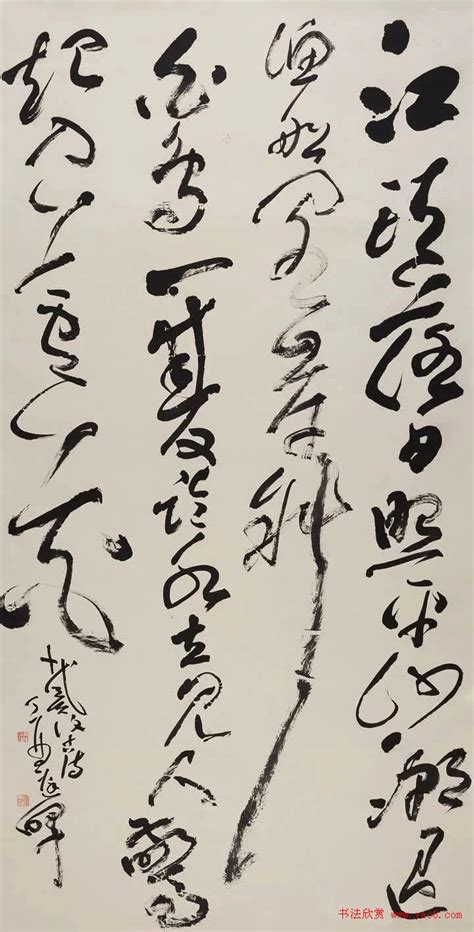 江頭落日照平沙潮退
漁船閣岸斜
白鳥一雙臨水立見人驚
起入蘆花
戴復古詩
书法欣赏
www.yac8.com